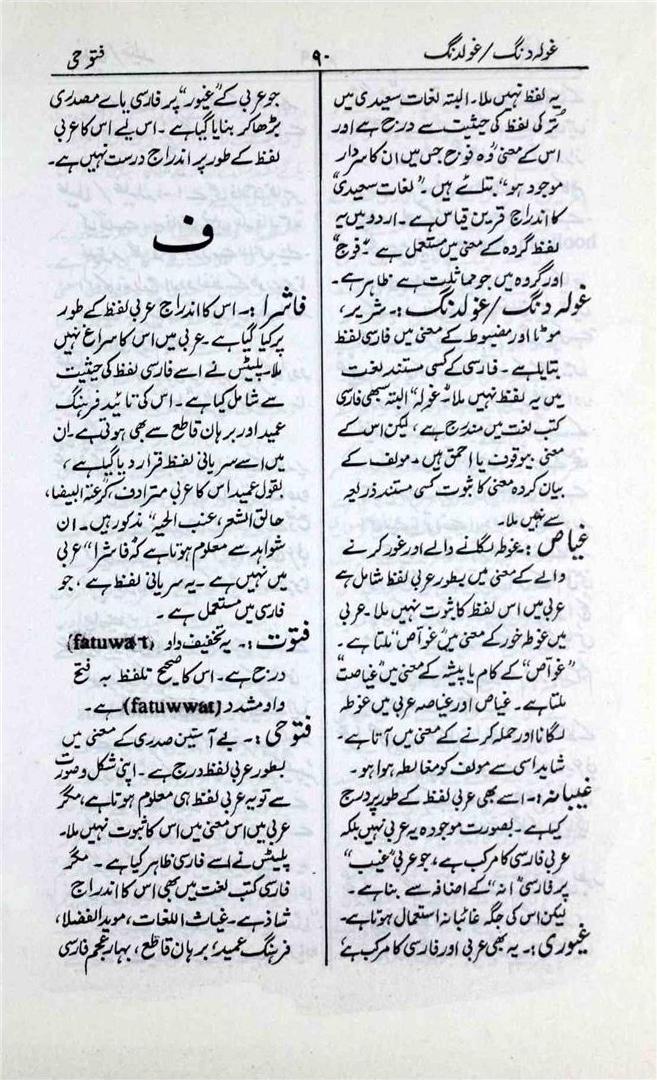 غولہ دنگ/غولدنگ
۹۰
فتوحی
یہ لفظ نہیں ملا۔ البتہ لغات سعیدی میں
تُرکی لفظ کی حیثیت سے درج ہے اور
اس کے معنی ”وہ فوج جس میں ان کا سردار
موجود ہو“ بتائے ہیں۔ ”لغات سعیدی“
کا اندراج قرین قیاس ہے۔ اردو میں یہ
لفظ گروہ کے معنی میں مستعمل ہے۔ ”فوج“
اور گروہ میں جو مماثلیت ہے ظاہر ہے۔
غولہ دنگ/غولدنگ:۔ شریر،
موٹا اور مضبوط کے معنی میں فارسی لفظ
بتایا ہے۔ فارسی کے کسی مستند لغت
میں یہ لفظ نہیں ملا۔ ”غولہ“ البتہ سبھی فارسی
کتب لغت میں مندرج ہے، لیکن اس کے
معنی بیوقوف یا احمق ہیں۔ مولف کے
بیان کردہ معنی کا ثبوت کسی مستند ذریعہ
سے نہیں ملا۔
غیاص:۔ غوطہ لگانے والے اور غور کرنے
والے کے معنی میں بطور عربی لفظ شامل ہے
عربی میں اس لفظ کا ثبوت نہیں ملا۔ عربی
میں غوطہ خور کے معنی میں ”غوّاص“ ملتا ہے۔
”غوّاص“ کے کام یا پیشہ کے معنی میں ”غیاصت“
ملتا ہے۔ غیاص اور غیاصہ عربی میں غوطہ
لگانا اور حملہ کرنے کے معنی میں آتا ہے۔
شاید اسی سے مولف کو مغالطہ ہوا ہو۔
غیبانہ:۔ اسے بھی عربی لفظ کے طور پر درج
کیا ہے۔ بصورت موجودہ یہ عربی نہیں بلکہ
عربی فارسی کا مرکب ہے، جو عربی ”غیب“
پر فارسی ”انہ“ کے اضافہ سے بنا ہے۔
لیکن اس کی جگہ غائبانہ استعمال ہوتا ہے۔
غیوری:۔ یہ بھی عربی اور فارسی کا مرکب ہے
جو عربی کے ”غیور“ پر فارسی یائے مصدری
بڑھا کر بنایا گیا ہے۔ اس لیے اس کا عربی
لفظ کے طور پر اندراج درست نہیں ہے۔
ف
فاشرا:۔ اس کا اندراج عربی لفظ کے طور
پر کیا گیا ہے۔ عربی میں اس کا سراغ نہیں
ملا۔ پلیٹس نے اسے فارسی لفظ کی حیثیت
سے شامل کیا ہے۔ اس کی تائید فرہنگ
عمید اور برہان قاطع سے بھی ہوتی ہے۔ ان
میں اسے سریانی لفظ قرار دیا گیا ہے،
بقول عمید اس کا عربی مترادف البیضا،
حالق الشعر، عنب الحیہ“ مذکور ہیں۔ ان
شواہد سے معلوم ہوتا ہے کہ ”فاشرا“ عربی
میں نہیں ہے۔ یہ سریانی لفظ ہے، جو
فارسی میں مستعمل ہے۔
فتوت:۔ یہ تخفیف واو (fatuwat)
درج ہے۔ اس کا صحیح تلفظ بہ فتح
واو مشدد (fatuwwat) ہے۔
فتوحی:۔ بے آستین صدری کے معنی میں
بطور عربی لفظ درج ہے۔ اپنی شکل و صورت
سے تو یہ عربی لفظ ہی معلوم ہوتا ہے، مگر
عربی میں اس معنی میں اس کا ثبوت نہیں ملا۔
پلیٹس نے اسے فارسی ظاہر کیا ہے۔ مگر
فارسی کتب لغت میں بھی اس کا اندراج
شاذ ہے۔ غیاث اللغات، موید الفضلا،
فرہنگ عمید، برہان قاطع، بہار عجم فارسی